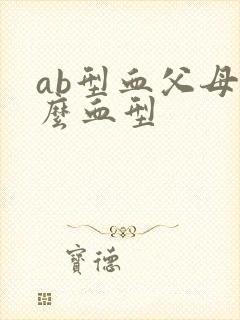 ab型血父母
麼血型
寶德